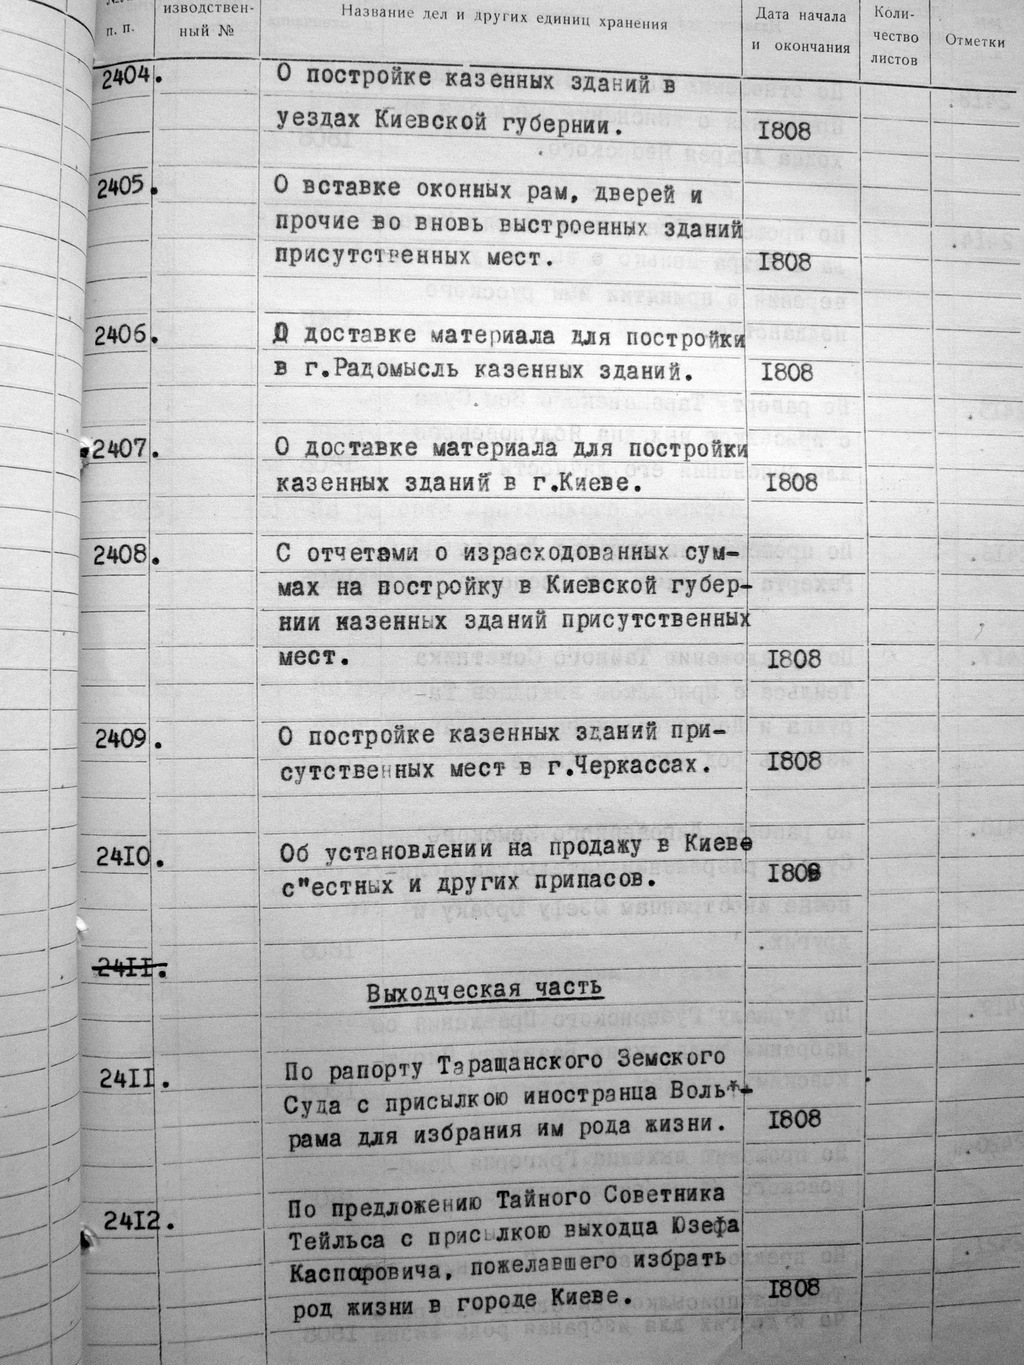 п. п.
изводствен-
ный №
Название дел и других единиц хранения
Дата начала
и окончания
Коли-
чество
листов
Отметки
2404.
О постройке казенных зданий в
уездах Киевской губернии.
1808
2405.
О вставке оконных рам, дверей и
прочие во вновь выстроенных зданий
присутственных мест.
1808
2406.
О доставке материала для постройки
в г.Радомысль казенных зданий.
1808
2407.
О доставке материала для постройки
казенных зданий в г.Киеве.
1808
2408.
С отчетами о израсходованных сум-
мах на постройку в Киевской губер-
нии казенных зданий присутственных
мест.
1808
2409.
О постройке казенных зданий при-
сутственных мест в г.Черкассах.
1808
2410.
Об установлении на продажу в Киеве
с"естных и других припасов.
1808
2411.
Выходческая часть
2411.
По рапорту Таращанского Земского
Суда с присылкою иностранца Воль-
рама для избрания им рода жизни.
1808
2412.
По предложению Тайного Советника
Тейльса с присылкою выходца Юзефа
Каспоровича, пожелавшего избрать
род жизни в городе Киеве.
1808